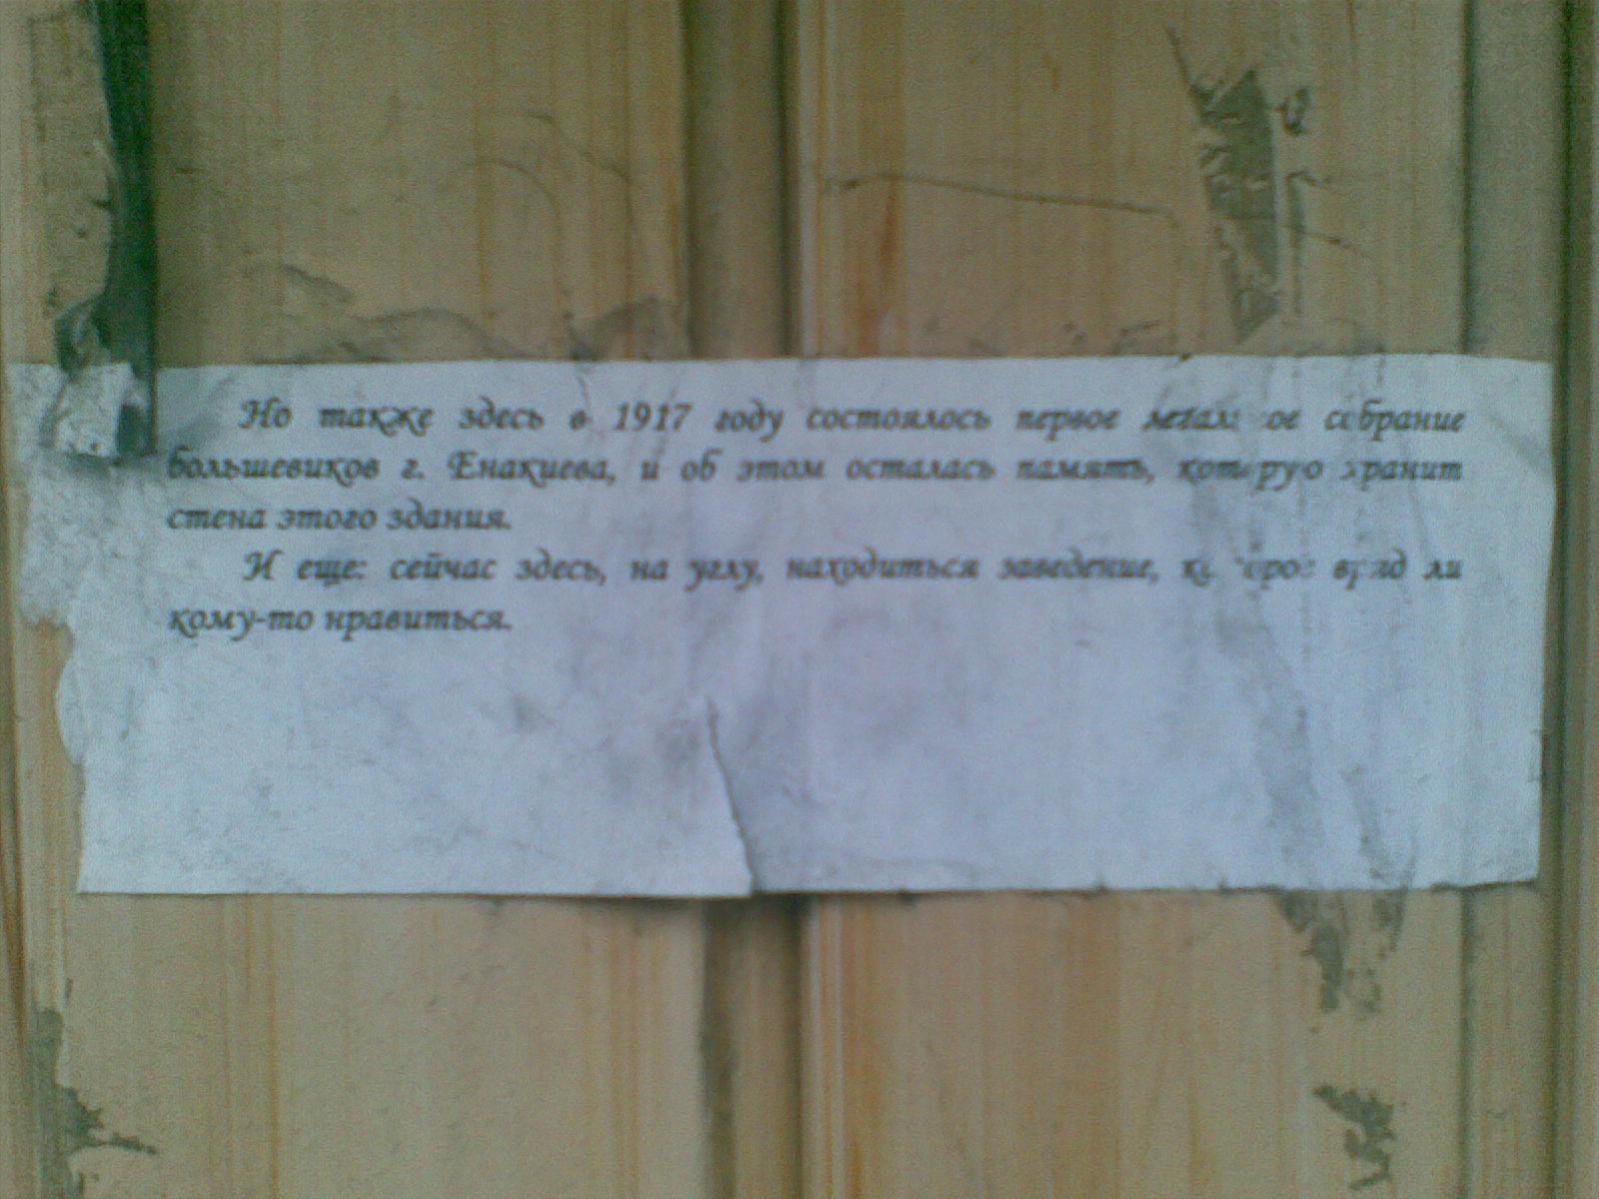 Но также здесь в 1917 году состоялось первое легальное собрание
большевиков г. Енакиева, и об этом осталась память, которую хранит
стена этого здания.
И еще: сейчас здесь, на углу, находиться заведение, которое вряд ли
кому-то нравиться.